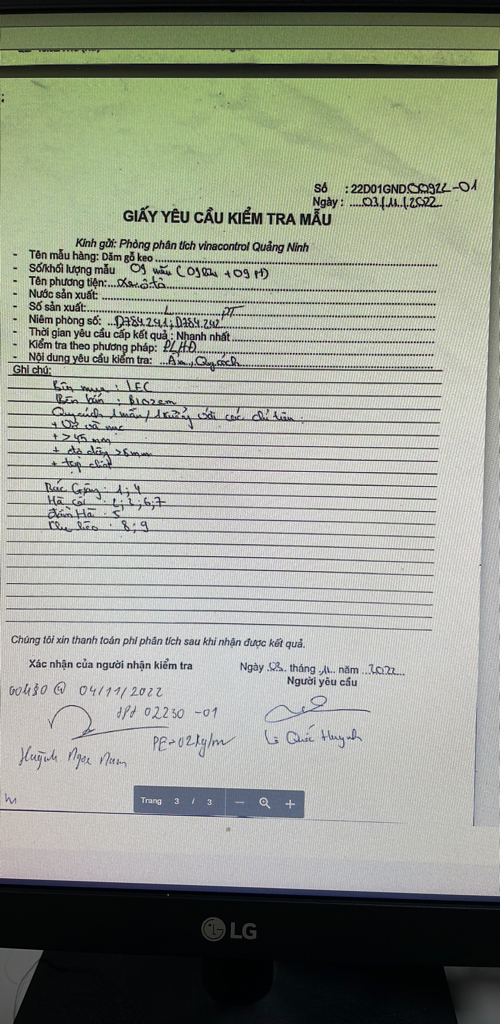 Số : 22D01GND00922-01
Ngày : 03/11/2022
GIẤY YÊU CẦU KIỂM TRA MẪU
Kính gửi: Phòng phân tích vinacontrol Quảng Ninh
- Tên mẫu hàng: Dăm gỗ keo
- Số/khối lượng mẫu 09 mẫu (09 + 09
- Tên phương tiện: xe ôtô
- Nước sản xuất:
- Số sản xuất:
- Niêm phong số: D784.241; D784.242
- Thời gian yêu cầu cấp kết quả : Nhanh nhất
- Kiểm tra theo phương pháp: PLHD
- Nội dung yêu cầu kiểm tra: Ẩm, Quy cách
Ghi chú:
Bên mua : LEC
Bên bán :
Quy cách 1 mẫu / 1 xưởng với các chỉ tiêu :
+ Vỏ và mục
+ >45 mm
+ độ dày >8mm
+ tạp chất
Bắc : 1; 4
Hà cối : 2; 3; 6,7
Đầm Hà : 5
: 8; 9
Chúng tôi xin thanh toán phí phân tích sau khi nhận được kết quả.
Xác nhận của người nhận kiểm tra
Ngày 03 tháng 11 năm 2022
Người yêu cầu
00h30 @ 04/11/2022
02230 -01
PE
Lê Quốc Huynh
Huỳnh Ngọc Nam
Trang 3 / 3
LG